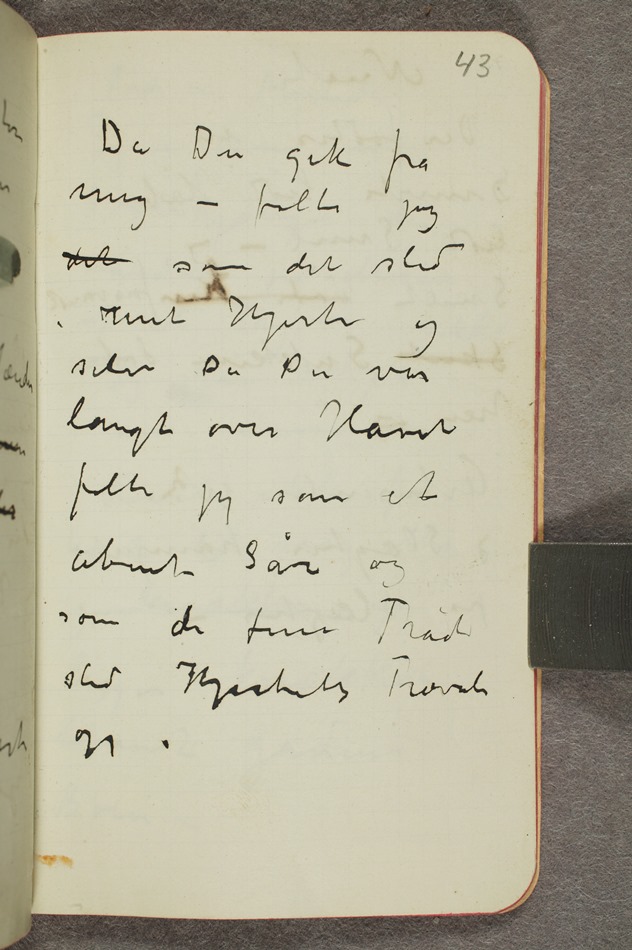 43
Da Du gik fra
mig – følte jeg
det som det sled
mit Hjerte og
selv Da Du var
langt over Havet
følte jeg som et
abent Sår og
som de fine Tråde
sled Hjertets Trævler
op .